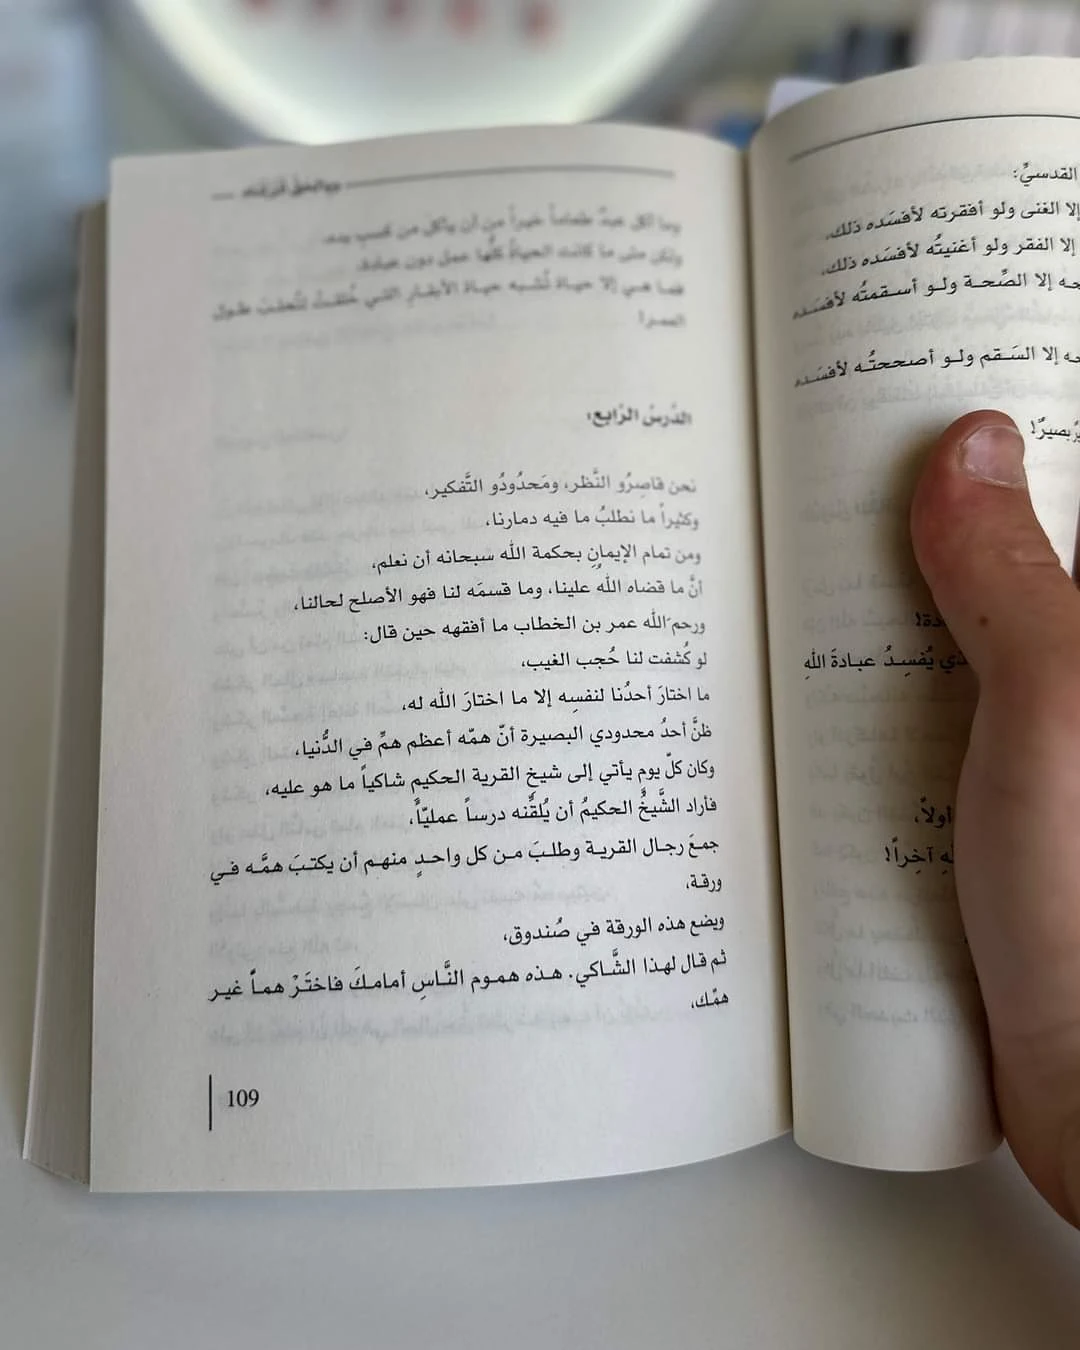 وبالحقِّ أنزلناه
وما أكل عبدٌ طعاماً خيراً من أن يأكل من كسب يده،
ولكن متى ما كانت الحياةُ كلُّها عمل دون عبادة،
فما هي إلا حياة تُشبه حياة الأبقار التي خُلقتْ لتُحلبَ طول
العمر!
الدَّرسُ الرَّابع:
نحن قاصِرُو النَّظر، ومَحدُودُو التَّفكير،
وكثيراً ما نطلبُ ما فيه دمارنا،
ومن تمام الإيمانِ بحكمة الله سبحانه أن نعلم،
أنَّ ما قضاه الله علينا، وما قسمَه لنا فهو الأصلح لحالنا،
ورحم َالله عمر بن الخطاب ما أفقهه حين قال:
لو كُشفت لنا حُجب الغيب،
ما اختارَ أحدُنا لنفسِه إلا ما اختارَ الله له،
ظنَّ أحدُ محدودي البصيرة أنّ همّه أعظم همِّ في الدُّنيا،
وكان كلّ يومٍ يأتي إلى شيخِ القرية الحكيم شاكياً ما هو عليه،
فأراد الشَّيخُ الحكيمُ أن يُلقِّنه درساً عمليّاً،
جمعَ رجال القرية وطلبَ من كل واحدٍ منهم أن يكتبَ همَّه في
ورقة،
ويضع هذه الورقة في صُندوق،
ثم قال لهذا الشَّاكي. هذه هموم النَّاسِ أمامكَ فاختَرْ هماً غير
همِّك،
109
القدسيِّ:
إلا الغنى ولو أفقرته لأفسَده ذلك،
إلا الفقر ولو أغنيتُه لأفسَده ذلك،
إلا الصِّحة ولو أسقمتُه لأفسَده
إلا السَقم ولو أصححتُه لأفسَده
بصيرٌ!
يُفسِدُ عبادةَ اللهِ
أولاً،
آخِراً!